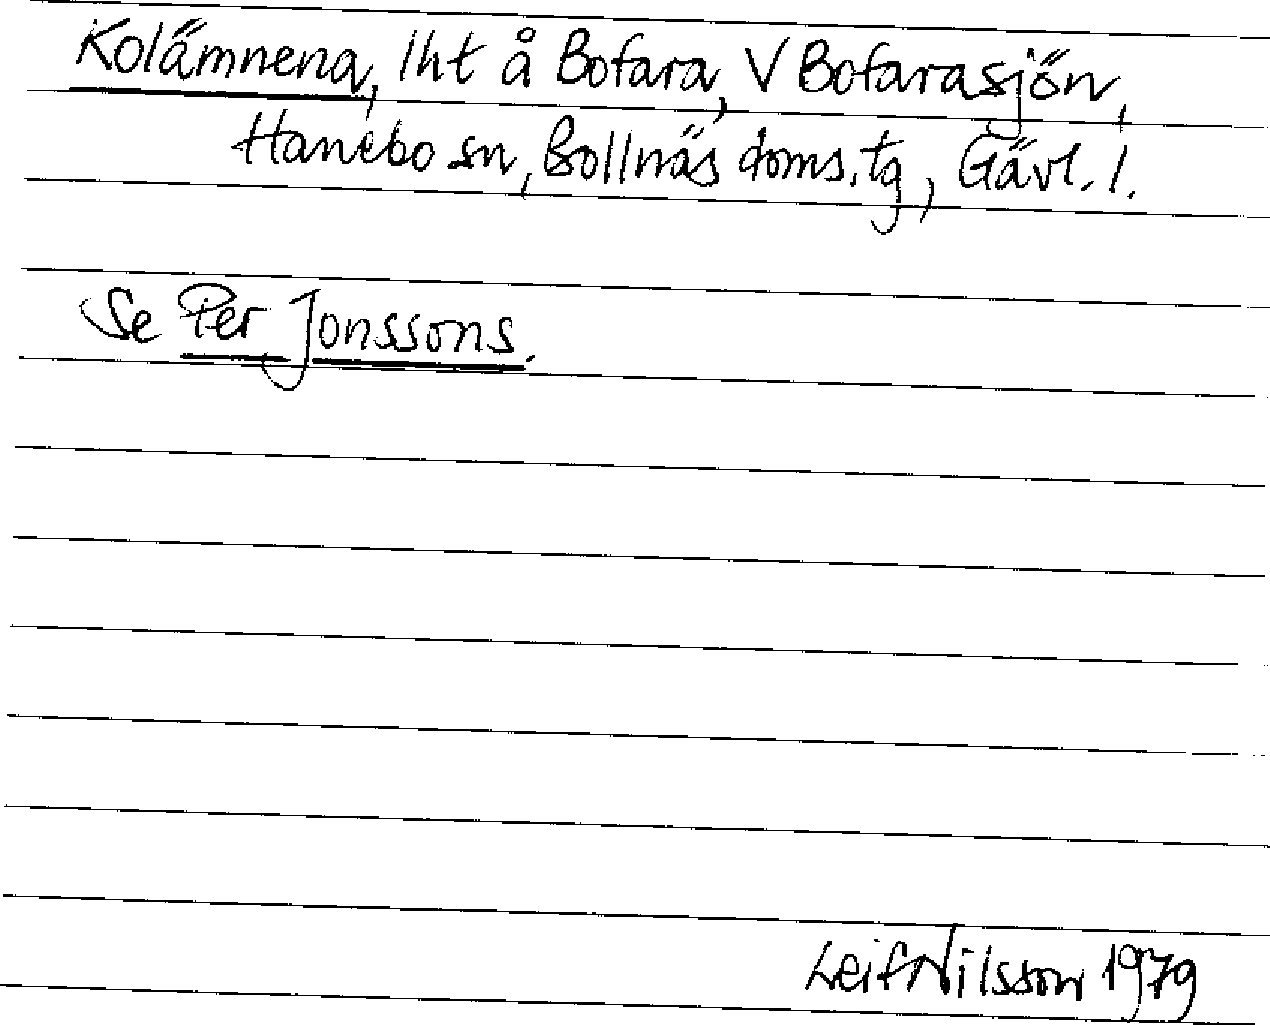 Kolämnena, lht å Bofara, V Bofarasjön,
Hanebo sn, Bollnäs doms.tg, Gävl. l.
Se Per Jonssons.
Leif Nilsson 1979